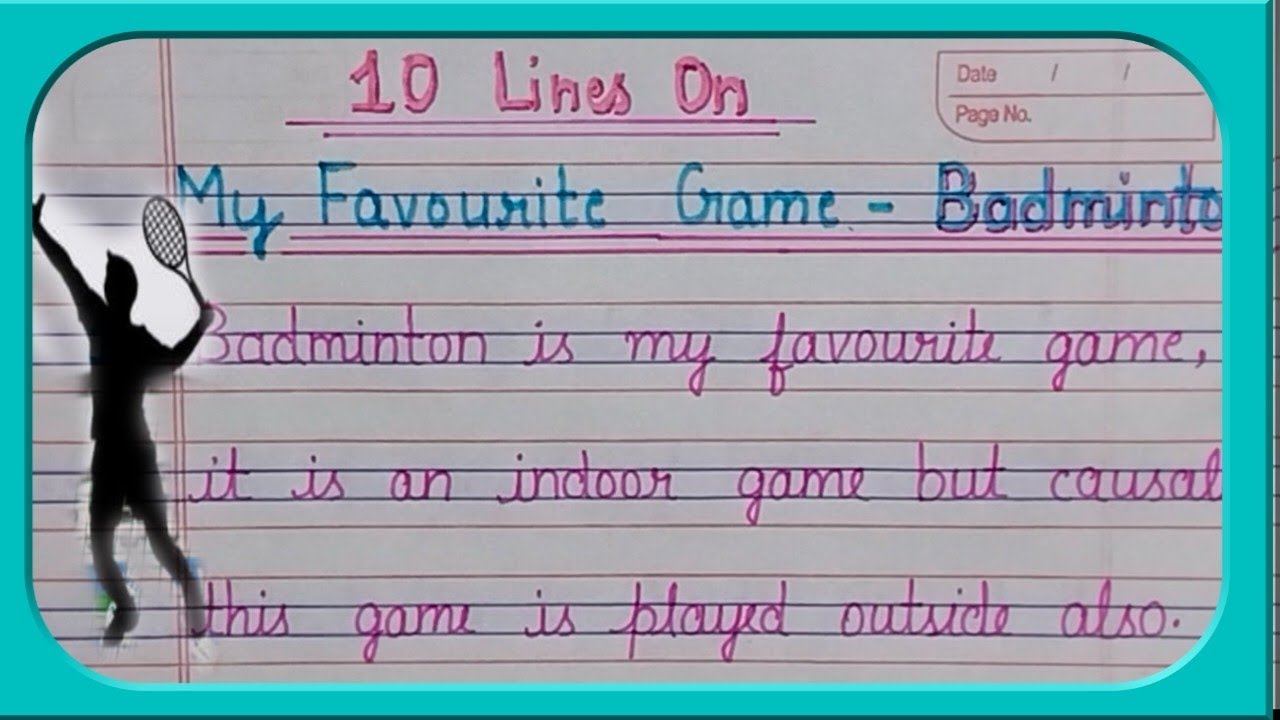 10 Lines On
Date / /
Page No.
My Favourite Game - Badminto
Badminton is my favourite game,
it is an indoor game but causal
this game is played outside also.